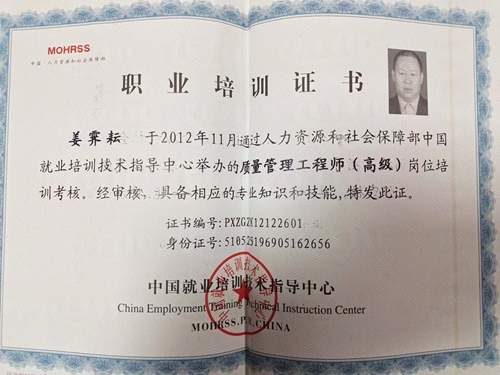 MOHRSS
中国·人力资源和社会保障部
职业培训证书
姜霁耘 于2012年11月通过人力资源和社会保障部中国
就业培训技术指导中心举办的质量管理工程师（高级）岗位培
训考核。经审核，具备相应的专业知识和技能，特发此证。
证书编号:PXZGZ
身份证号:
中国就业培训技术指导中心
China Employment Training Technical Instruction Center
MOHRSS.P.R.CHINA